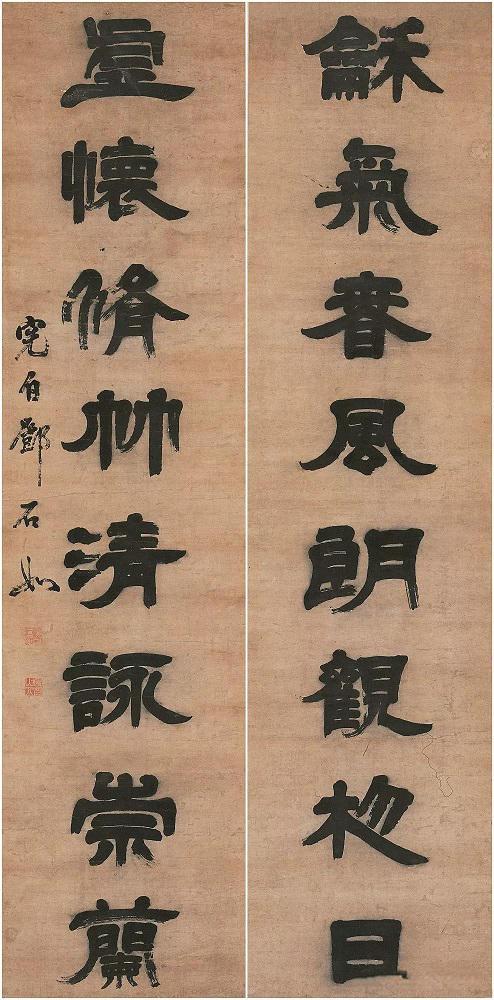 龢氣春風朗觀初日
虛懷脩竹清詠崇蘭
完白鄧石如